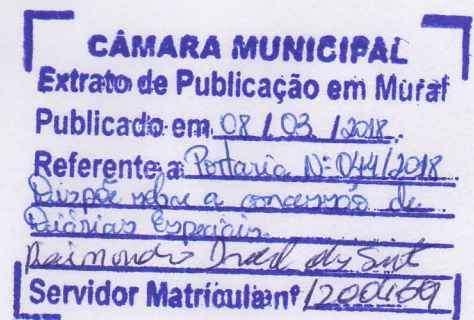 CÂMARA MUNICIPAL
Extrato de Publicação em Mural
Publicado em 08 / 03 / 2018.
Referente a: Portaria Nº 044/2018
Dispõe sobre a concessão de
Diárias Especiais.
Raimundo
Servidor Matrícula nº 1200469